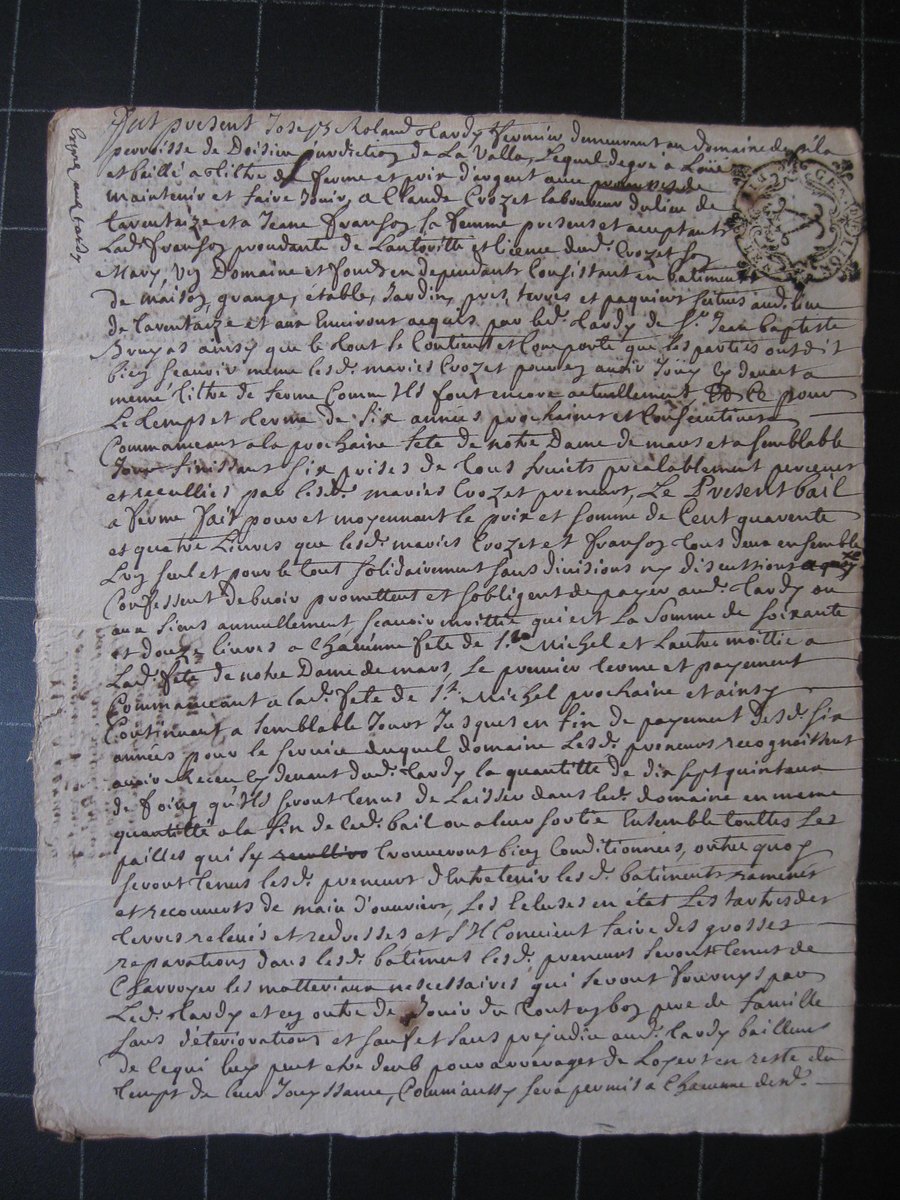 Fut present Joseph Roland Hardy fermier demeurant au domaine de
perroisse de Doisieu jurdiction de La Valla, Lequel degré a Loüé
et baillé a tithre de ferme et prix d'argent avec promesse de
maintenir et faire Jouir, a Claude Crozet laboureur du lieu de
tarentaize et a Jeane Franson sa femme presens et acceptants
Lad. Franson procedante de Lautoritté et licence dud. Crozet son
Mary, Un Domaine et fonds en dependants Consistant en bâtiments
de maison, grange, étable, Jardin, prés, terres et paquiers scitués aud. lieu
de Tarentaize et aux Environs acquis par led. Hardy de Sr. Jean Baptiste
Bruyas ainsy que le tout se Contient et Comporte que les parties ont dit
bien scavoir meme lesd. mariés Crozet pour en avoir Jouy cy devant a
meme tithre de ferme Comme Ils font encore actuellement, Et Ce pour
Le temps et terme de six années prochaines et Consecutives
Commancant a la prochaine fete de notre Dame de mars et a semblable
Jour finissant six prises de tous fruits préalablement perceues
et recullies par lesd. mariés Crozet preneurs, Le Present bail
a ferme fait pour et moyennant le prix et somme de Cent quarente
et quatre Livres que lesd. mariés Crozet et Franson tous deux ensemble
L'un seul et pour le tout solidairement sans divisions ny discussions
Confessent debvoir promettent et s'obligent de payer aud. Hardy ou
aux siens annuellement scavoir moittié qui est La Somme de soixante
et douze livres a Chacunne fete de St. Michel et L'autre moittié a
Lad. fete de notre Dame de mars, Le premier terme et payement
Commancant a lad. fete de St. Michel prochaine et ainsy
Continuant a semblable Jours Jusques en fin de payement desd. six
années pour le service duquel domaine Lesd. preneurs recognoissent
avoir Receu cy devant dud. Hardy la quantitté de dix sept quintaux
de foing qu'ils seront tenus de Laisser dans led. domaine en meme
quantitté a la fin de led. bail ou a leur sortie Ensemble touttes Les
pailles qui s'y trouveront bien Conditionnées, outre quoy
seront tenus lesd. preneurs d'Entretenir lesd. bâtiments ramenés
et recouverts de main d'ouvrier, Les Ecluses en état Les tertres des
terres relevés et redressés et s'il Convient faire des grosses
reparations dans lesd. bâtiment lesd. preneurs seront tenus de
Charroyer les matteriaux nescessaires qui seront fournys par
Led. Hardy et en outre de Jouir du tout en bon pere de famille
sans déteriorations et sauf et sans prejudice aud. Hardy bailleur
de ce qui luy peut etre deub pour arrerages de Loyers en reste du
temps de leur Jouyssance, Comm'aussy sera permis a Chacunne desd.